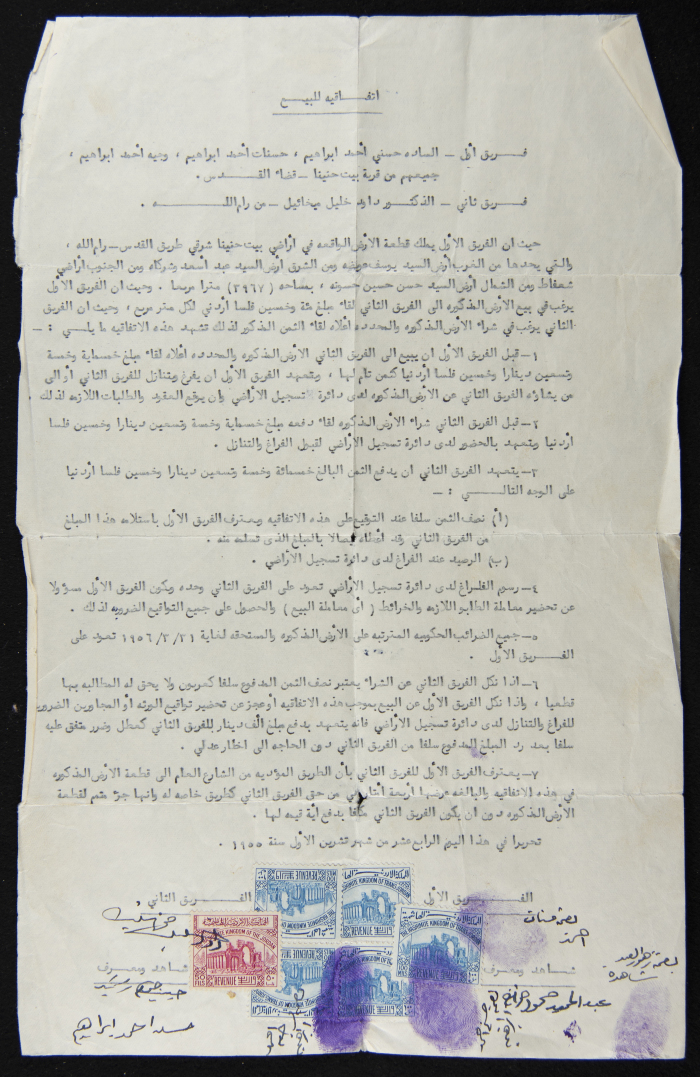 اتفـــاقيه للبيـــع
فـــريق أول - الساده حسني أحمد ابراهيم ، حسنات أحمد ابراهيم ، وجيه أحمد ابراهيم ،
جميعهم من قرية بيت حنينا - قضاء القـــدس .
فـــريق ثاني - الدكتور داود خليل ميخائيل - من رام اللـــه .
حيث ان الفريق الأول يملك قطعة الأرض الواقعه في أراضي بيت حنينا شرقي طريق القدس - رام الله ،
والتي يحدها من الغرب أرض السيد يوسف ومن الشرق أرض السيد عبد أسعد وشركاه ومن الجنوب أراضي
شعفاط ومن الشمال أرض السيد حسن حسين حسونه ، بمساحه (٣٩٦٧) مترا مربعا . وحيث ان الفريق الأول
يرغب في بيع الأرض المذكوره الى الفريق الثاني لقاء مبلغ مئة وخمسين فلسا أردني لكل متر مربع ، وحيث ان الفريق
الثاني يرغب في شراء الأرض المذكوره والمحدده أعلاه لقاء الثمن المذكور لذلك تشهد هذه الاتفاقيه ما يلـــي : -
١- قبل الفريق الأول ان يبيع الى الفريق الثاني الأرض المذكوره والمحدده أعلاه لقاء مبلغ خمسماية وخمسة
وتسعين دينارا وخمسين فلسا أردنيا كثمن تام لها ، ويتعهد الفريق الأول ان يفرغ ويتنازل للفريق الثاني أو الى
من يشاؤه الفريق الثاني عن الأرض المذكوره لدى دائرة تسجيل الأراضي وان يوقع العقود والطلبات اللازمه لذلك .
٢- قبل الفريق الثاني شراء الأرض المذكوره لقاء دفعه مبلغ خمسماية وخمسة وتسعين دينارا وخمسين فلسا
أردنيا ويتعهد بالحضور لدى دائرة تسجيل الأراضي لقبول الفراغ والتنازل .
٣- يتعهد الفريق الثاني ان يدفع الثمن البالغ خمسمائة وخمسة وتسعين دينارا وخمسين فلسا أردنيا
على الوجه التالـــي : -
(أ) نصف الثمن سلفا عند التوقيع على هذه الاتفاقيه ويعترف الفريق الأول باستلامه هذا المبلغ
من الفريق الثاني وقد أعطاه ايصالا بالمبلغ الذى تسلمه منه .
(ب) الرصيد عند الفراغ لدى دائرة تسجيل الأراضي .
٤- رسوم الفراغ لدى دائرة تسجيل الأراضي تعود على الفريق الثاني وحده ويكون الفريق الأول مسؤولا
عن تحضير معاملة الطابو اللازمه والخرائط ( أى معاملة البيع ) والحصول على جميع التواقيع الضروريه لذلك .
٥- جميع الضرائب الحكوميه المترتبه على الأرض المذكوره والمستحقه لغاية ١٩٥٦/٣/٣١ تعود على
الفـــريق الأول .
٦- اذا نكل الفريق الثاني عن الشراء يعتبر نصف الثمن المدفوع سلفا كعربون ولا يحق له المطالبه بها
قطعيا ، واذا نكل الفريق الأول عن البيع بموجب هذه الاتفاقيه أو عجز عن تحضير تواقيع الورثه أو المجاورين الضروريه
للفراغ والتنازل لدى دائرة تسجيل الأراضي فانه يتعهد بدفع مبلغ ألف دينار للفريق الثاني كعطل وضرر متفق عليه
سلفا بعد رد المبلغ المدفوع سلفا من الفريق الثاني دون الحاجه الى اخطار عدلي .
٧- يعترف الفريق الأول للفريق الثاني بأن الطريق المؤديه من الشارع العام الى قطعة الأرض المذكوره
في هذه الاتفاقيه والبالغه عرضها أربعة أمتار هي من حق الفريق الثاني كطريق خاصه له وانها جزء متمم لقطعة
الأرض المذكوره دون ان يكون الفريق الثاني مكلفا بدفع أية قيمه لها .
تحريرا في هذا اليوم الرابع عشر من شهر تشرين الأول سنة ١٩٥٥ .
الفـــريق الأول
الفـــريق الثاني
بصمة حسنات
احمد
شاهد ومعرف
شاهد ومعرف
حسني احمد ابراهيم
REVENUE